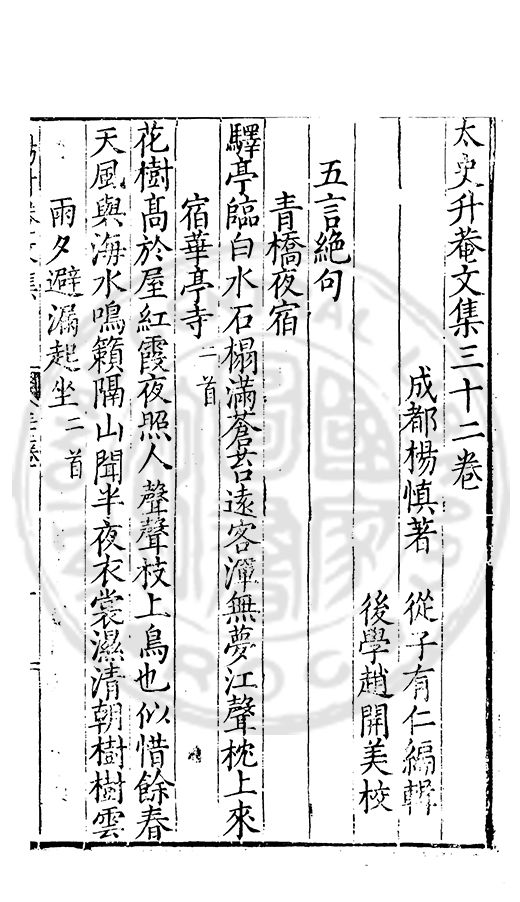 太史升菴文集三十二卷
成都楊慎著 從子有仁編輯
後學趙開美校
五言絕句
青橋夜宿
驛亭臨白水石榻滿蒼苔遠客渾無夢江聲枕上來
宿華亭寺二首
花樹髙於屋紅霞夜照人聲聲枝上鳥也似惜餘春
天風與海水鳴籟隔山聞半夜衣裳濕清朝樹樹雲
雨夕避漏起坐二首